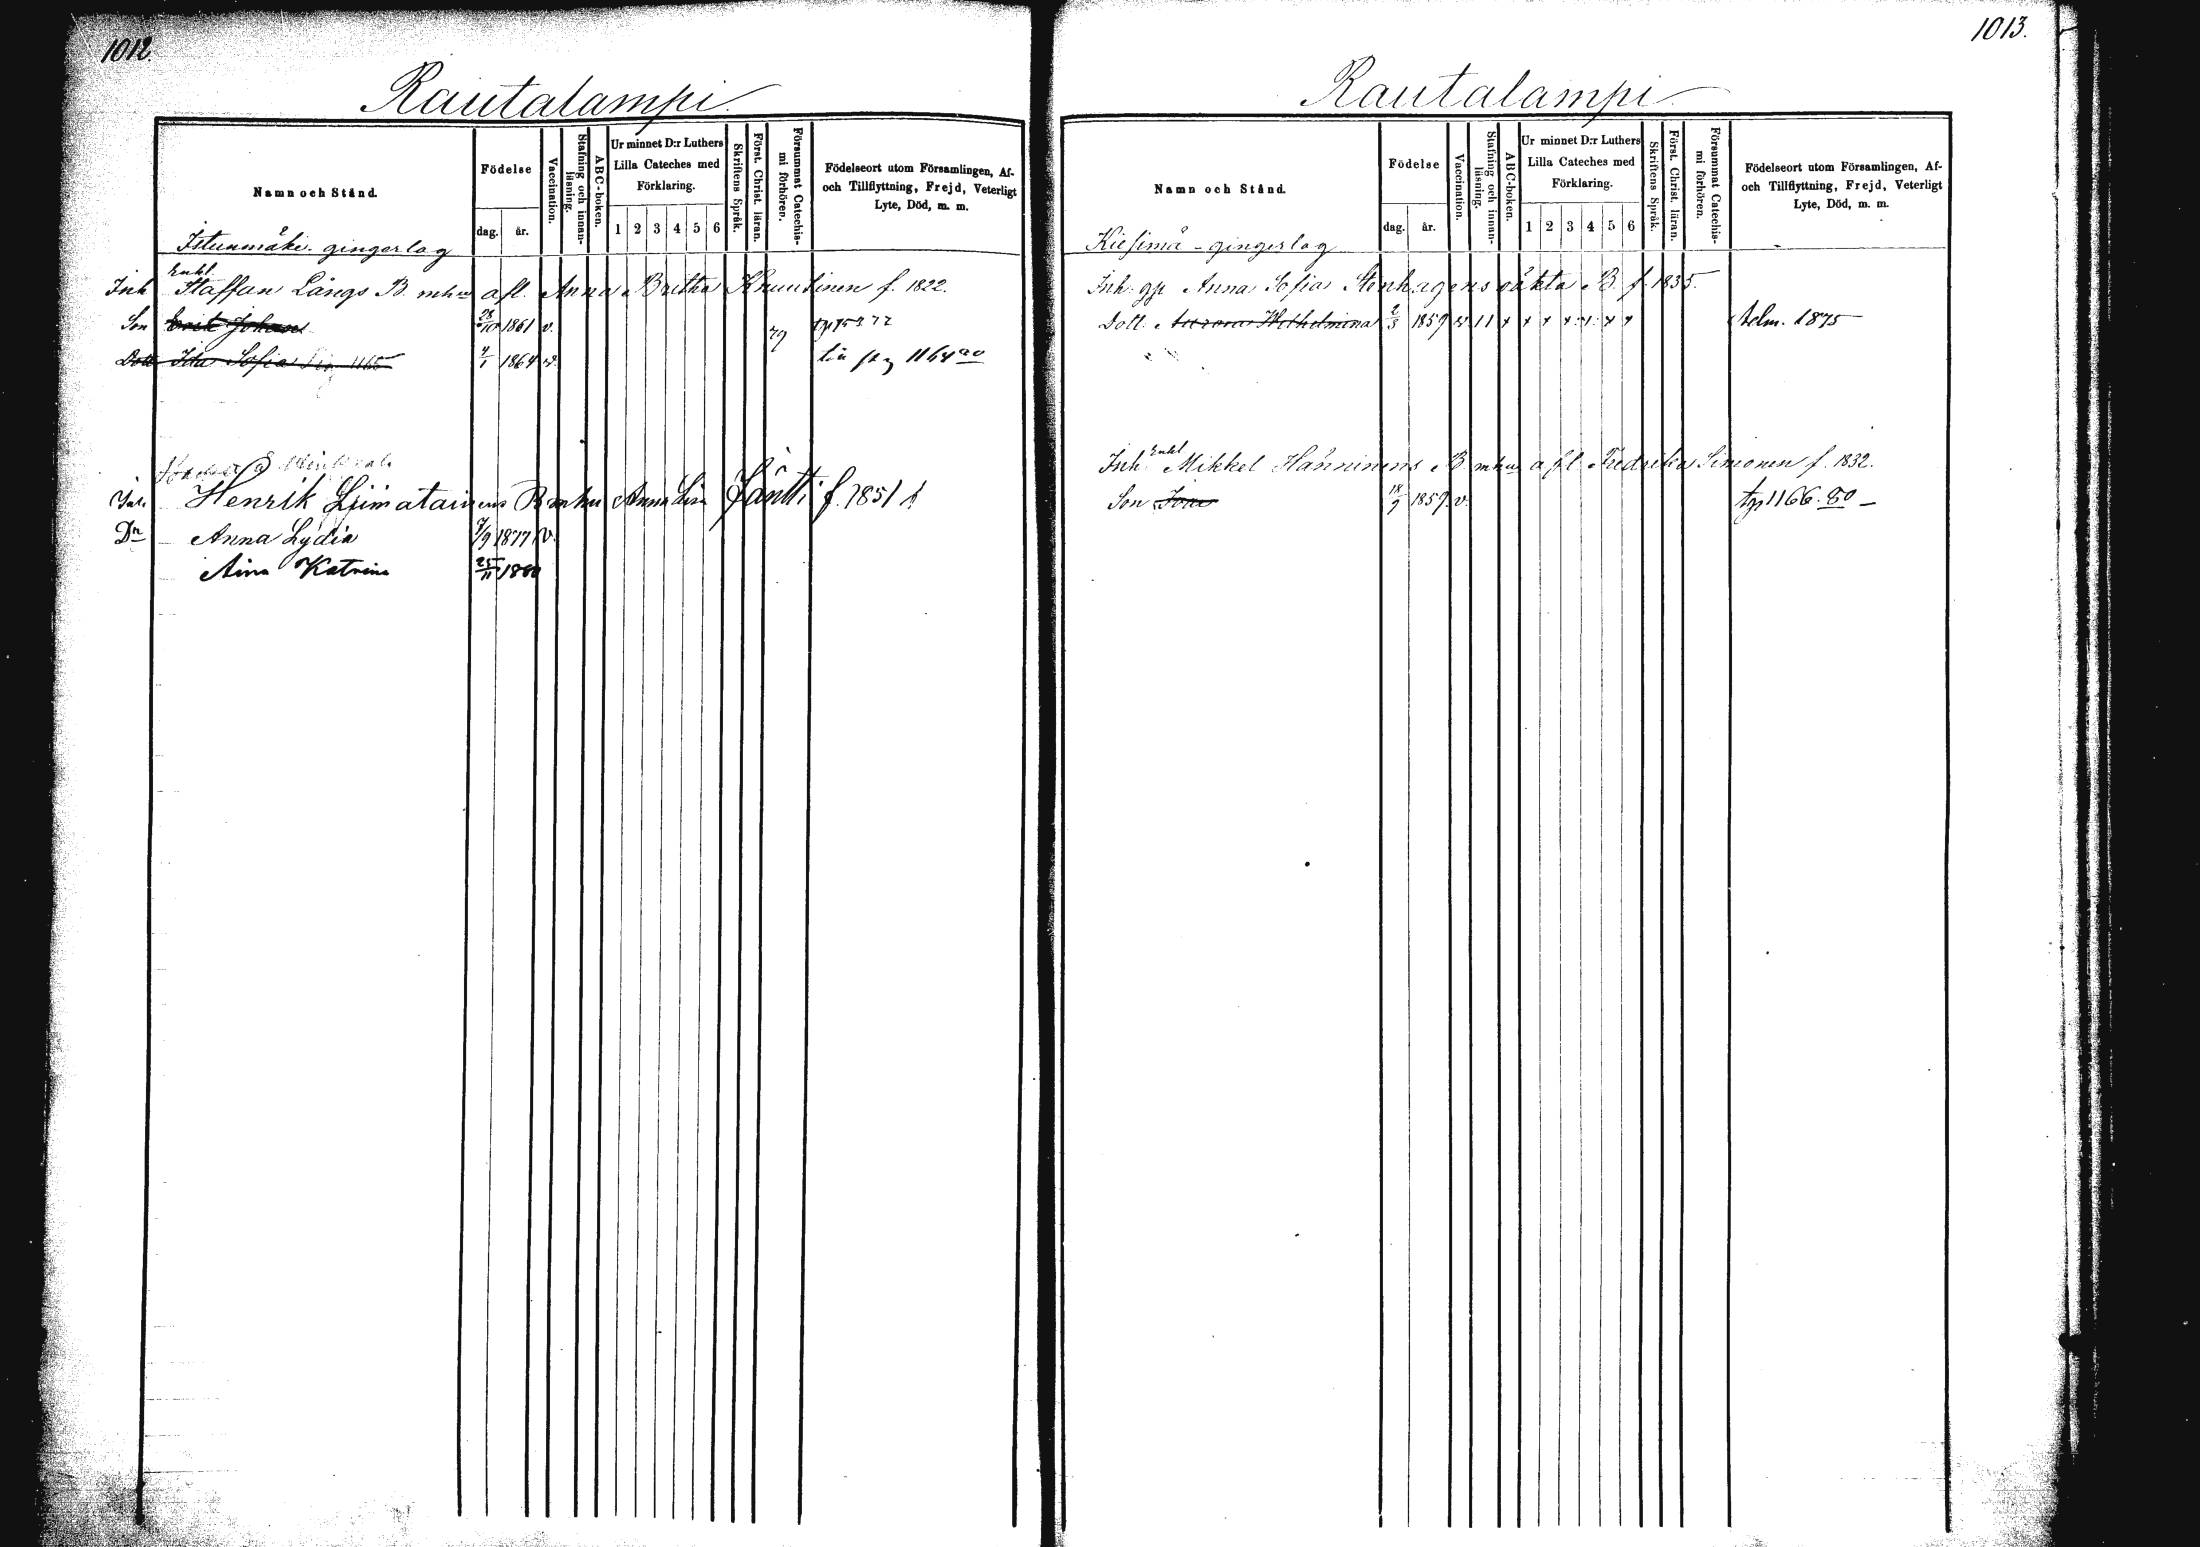 1012.
Rautalampi.
Namn och Stånd.
Födelse
dag. år.
Vaccination.
Stafning och innanläsning.
ABC-boken.
Ur minnet D:r Luthers Lilla Cateches med Förklaring.
1 2 3 4 5 6
Skriftens Språk.
Först. Christ. läran.
Försummat Catechismi förhören.
Födelseort utom Församlingen, Af- och Tillflyttning, Frejd, Veterligt Lyte, Död, m. m.
Istunmäki gingerlag
Enkl.
Inh Staffan Långs B. mhu afl. Anna Britha Knuutinen f. 1822.
Son Erik Johan 28/10 1861 v. 79
Dott Ida Sofia 1165 4/1 1864 v. 1164 80
Inh. Henrik Liimatainens B mhu Anna Lisa Jäntti f. 1851
Dr Anna Lydia 7/9 1877 v.
Aina Katrina 25/11 1880
1013.
Rautalampi
Namn och Stånd.
Födelse
dag. år.
Vaccination.
Stafning och innanläsning.
ABC-boken.
Ur minnet D:r Luthers Lilla Cateches med Förklaring.
1 2 3 4 5 6
Skriftens Språk.
Först. Christ. läran.
Försummat Catechismi förhören.
Födelseort utom Församlingen, Af- och Tillflyttning, Frejd, Veterligt Lyte, Död, m. m.
Kiesimä - gingerlag
Inh. gp Anna Sofia Stenhagens oäkta B. f. 1835.
Dott. Aurora Wilhelmina 2/3 1859 v. 11 x x x x x x adm. 1875
Enkl
Inh Mikkel Hänninens B mhu afl Fredrika Simonen f. 1832.
Son 18/9 1859. v. tgp 1166. 80 -